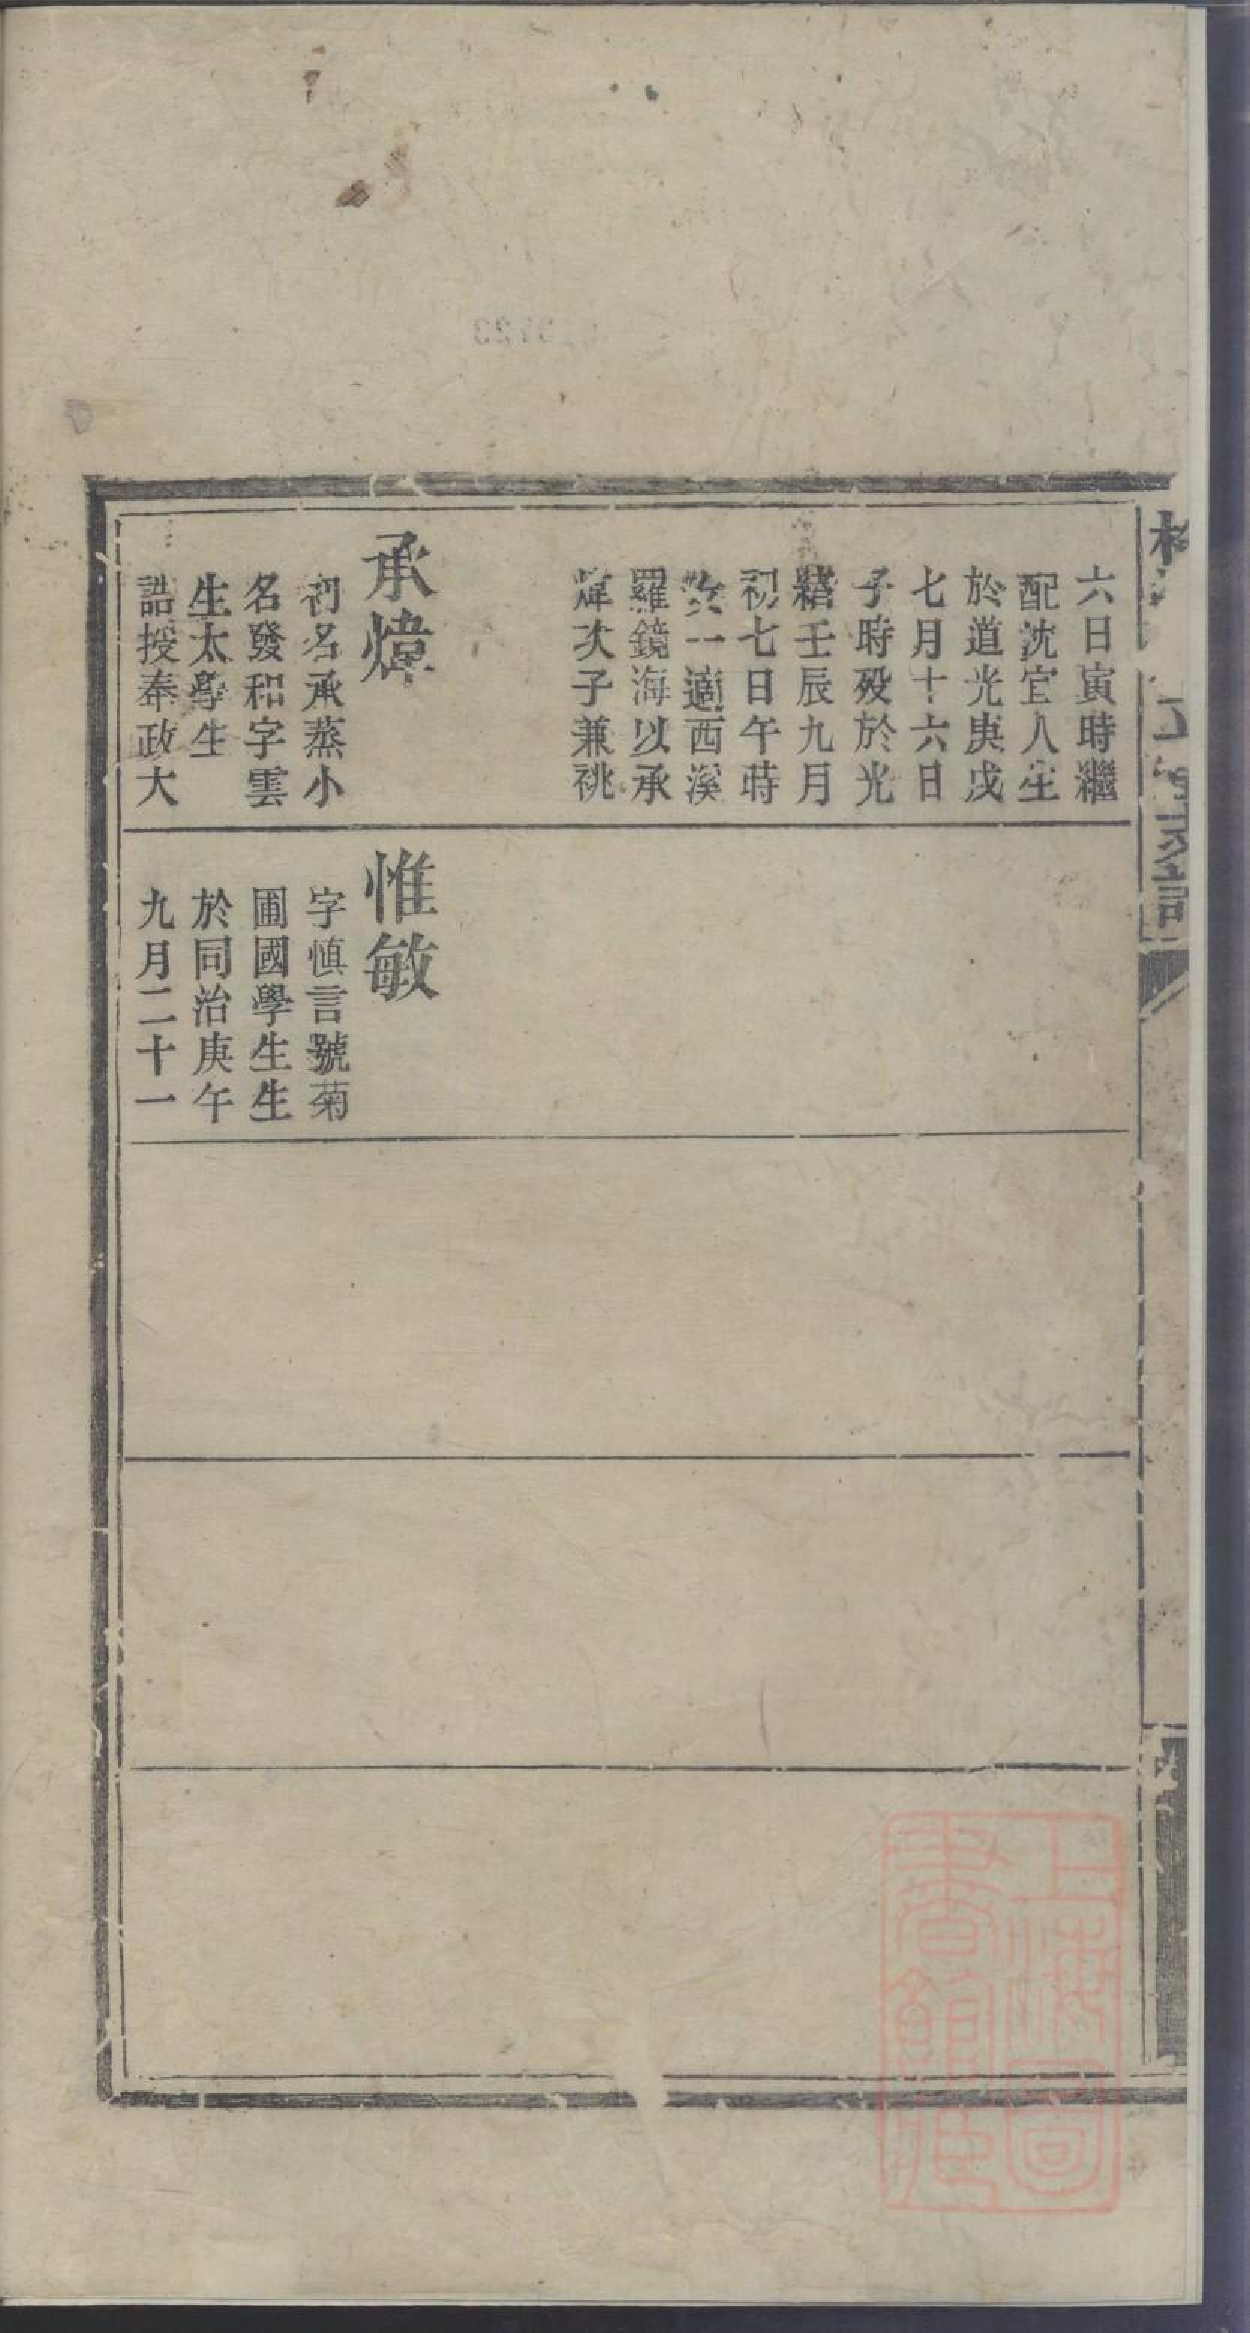 六日寅時繼
配沈宜人生
於道光庚戌
七月十六日
子時殁於光
緒壬辰九月
初七日午時
女一適西溪
羅鏡海以承
煒次子兼祧
承煒
初名承蒸小
名發和字雲
生太學生
誥授奉政大
惟敏
字慎言號菊
圃國學生生
於同治庚午
九月二十一
上海圖
書館藏